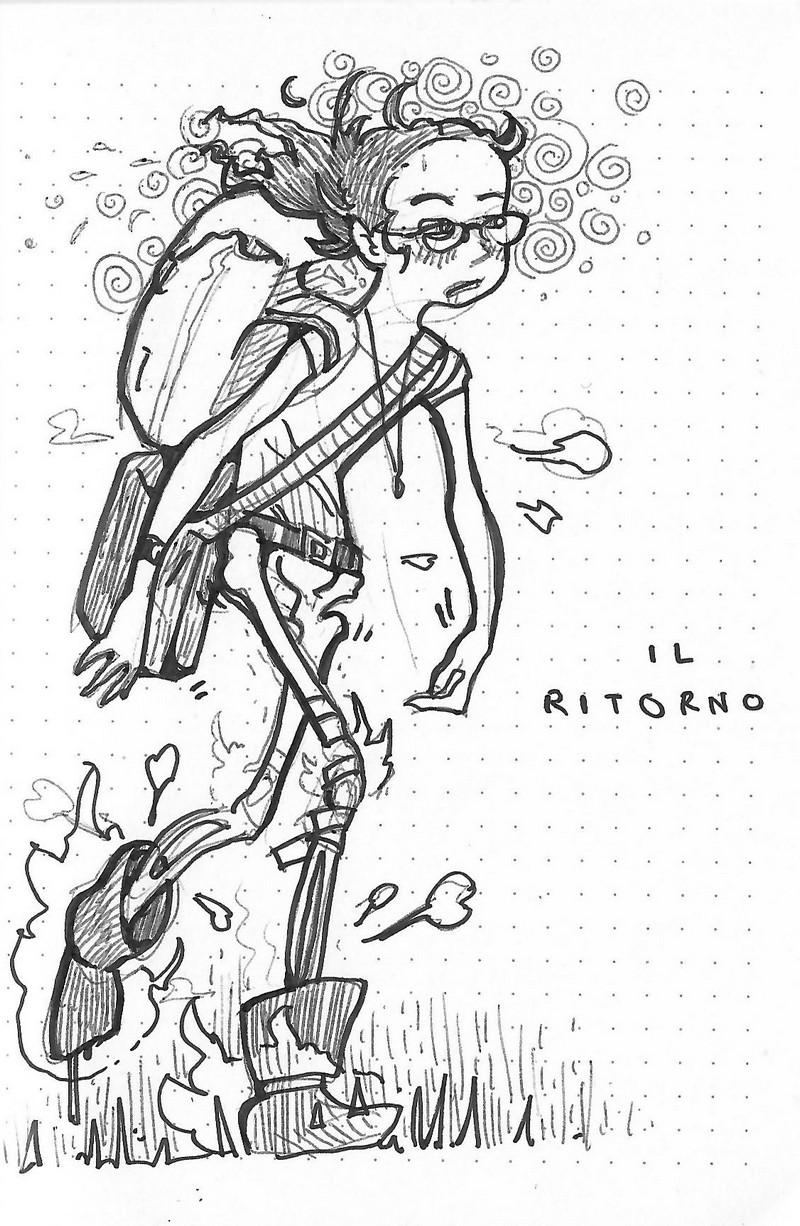 IL
RITORNO